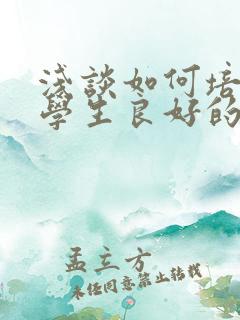 淺談如何培
學生良好的
孟立方
未經同意禁止轉載